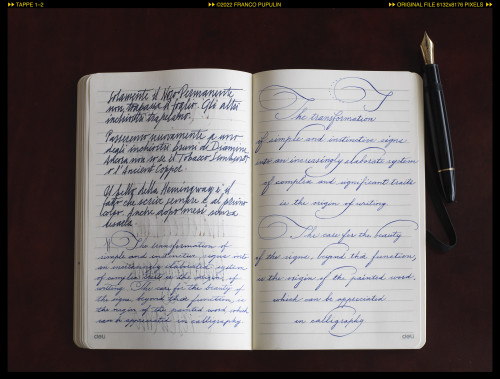 TAPPE 1-2
©2022 FRANCO PUPULIN
ORIGINAL FILE 8132x8176 PIXELS
Solamente il Nero Permanente
non trapassa il foglio. Gli altri
inchiostri trapelano.
Passeremo nuovamente a uno
degli inchiostri bruni di Diamine.
Adora non so se il Tobacco Sunburst
o l'Ancient Copper.
Il bello della Hemingway è il
fatto che scrive sempre e al primo
colpo. Anche dopo mesi senza
usarla.
The transformation of
simple and instinctive signs into
an increasingly elaborated system
of complex signs is the origin of
writing. The care for the beauty of
the signs, beyond their function, is
the origin of the painted word which
can be appreciated in calligraphy.
The transformation
of simple and instinctive signs
into an increasingly elaborate system
of complex and significant tracts
is the origin of writing
The care for the beauty
of the signs, beyond their function,
is the origin of the painted word,
which can be appreciated
in calligraphy